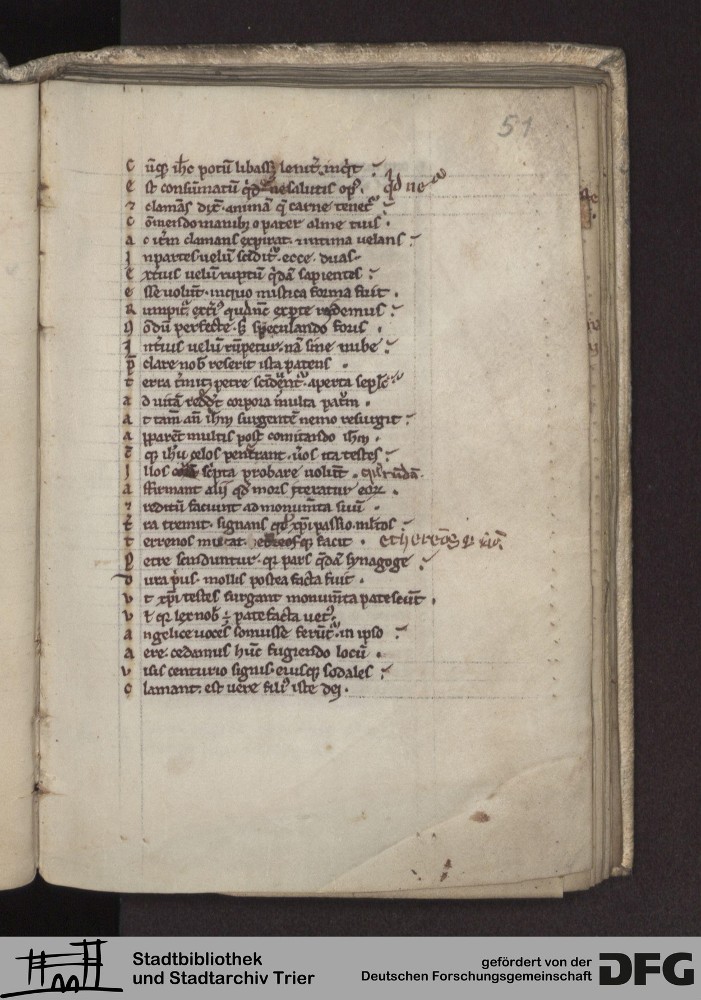 51
C ūq; ih̄c potū libass; leuit᷒. inq̇t
E st consūmatū qd ue salutis op᷒. qd ue
⁊ clamās dix̄. animā q̄ carne tenet᷒
C ōmendo manib; o pater alme tuis.
A c itm̄ clamans expirat. intima uelans
I n partes uelū scidit᷒. ecce. duas.
E xtius uelū ruptū q̄dā sapientes
E sse uolūt. in quo mistica forma fuit.
R umpit᷒. ext̄i᷒ qd nūc ex pte uidemus
N ōdū perfecte. s; speculando foris.
I nt̄ius uelū rūpetur. nā sine nube
p̄ clare nob̄ reserit ista patens.
T erra t̄mit. petre scindūt᷒. aperta sepl̄c
A d uitā redd̄t corpora multa patm̄.
A t tam̄ an̄ ih̄m surgentē nemo resurgit
A pparēt multis post comitando ih̄m.
ē q; ih̄u celos penetrant. u̇os ita testes
I llos scripta probare uolūt. quorūdā.
A ffirmant alii qd mors iteratur eoꝝ.
⁊ reditū faciunt ad monum̄ta suū.
t̄ ra tremit. signans qd xp̄i passio ml̄tos
T errenos mutat. ethereosq; facit. ethereos
P etre scinduntur. qꝛ pars q̄dā synagoge
D ura p̄us. mollis postea facta fuit.
V t xp̄i testes surgant monum̄ta patescūt.
V t qꝛ lex nob̄ ÷ patefacta uet᷒.
A ngelice uoces sonuisse ferūt᷒. in ipso
A ere. cedamus hūc fugiendo locū.
V isis centurio signis. eiusq; sodales
C lamant. est uere fili᷒ iste dei.
Stadtbibliothek
und Stadtarchiv Trier
gefördert von der
Deutschen Forschungsgemeinschaft
DFG